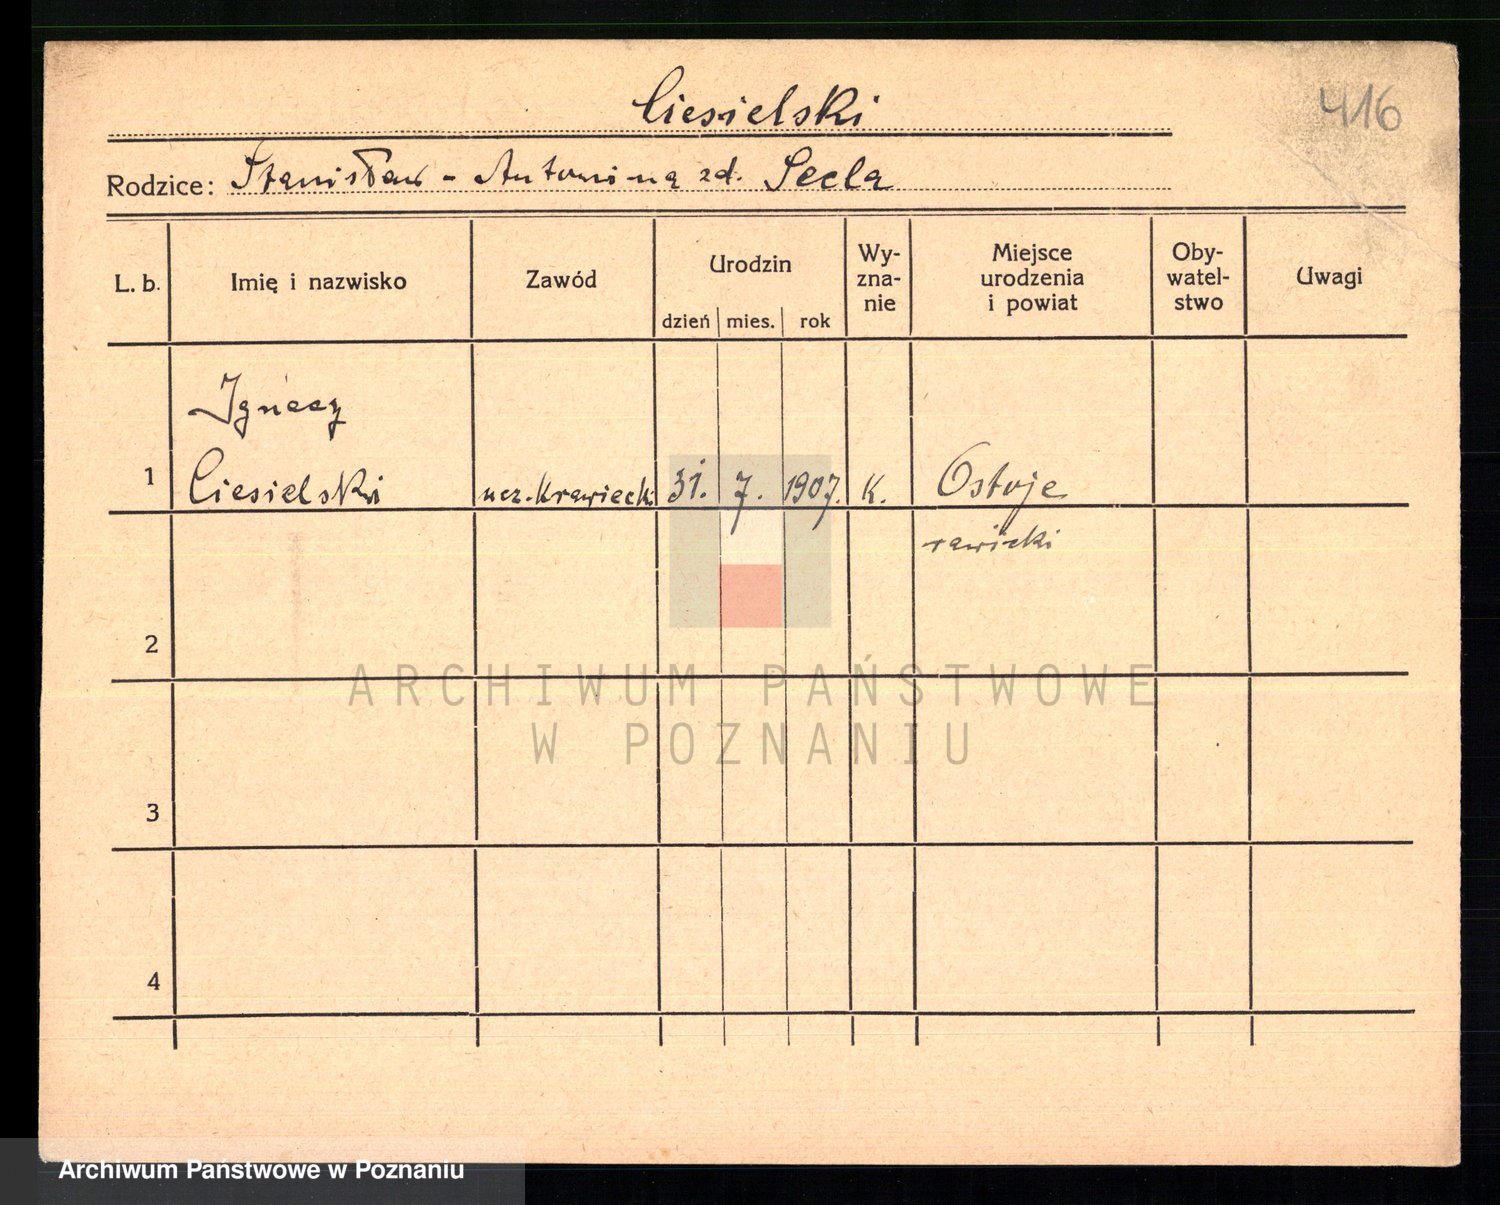 Ciesielski
416
Rodzice: Stanisław - Antonina zd. Secla
L. b. Imię i nazwisko Zawód Urodzin Wy- zna- nie Miejsce urodzenia i powiat Oby- watel- stwo Uwagi
dzień mies. rok
Ignacy
1 Ciesielski ucz. krawiecki 31. 7. 1907. K. Ostoje
rawicki
2
ARCHIWUM PAŃSTWOWE
W POZNANIU
3
4
Archiwum Państwowe w Poznaniu